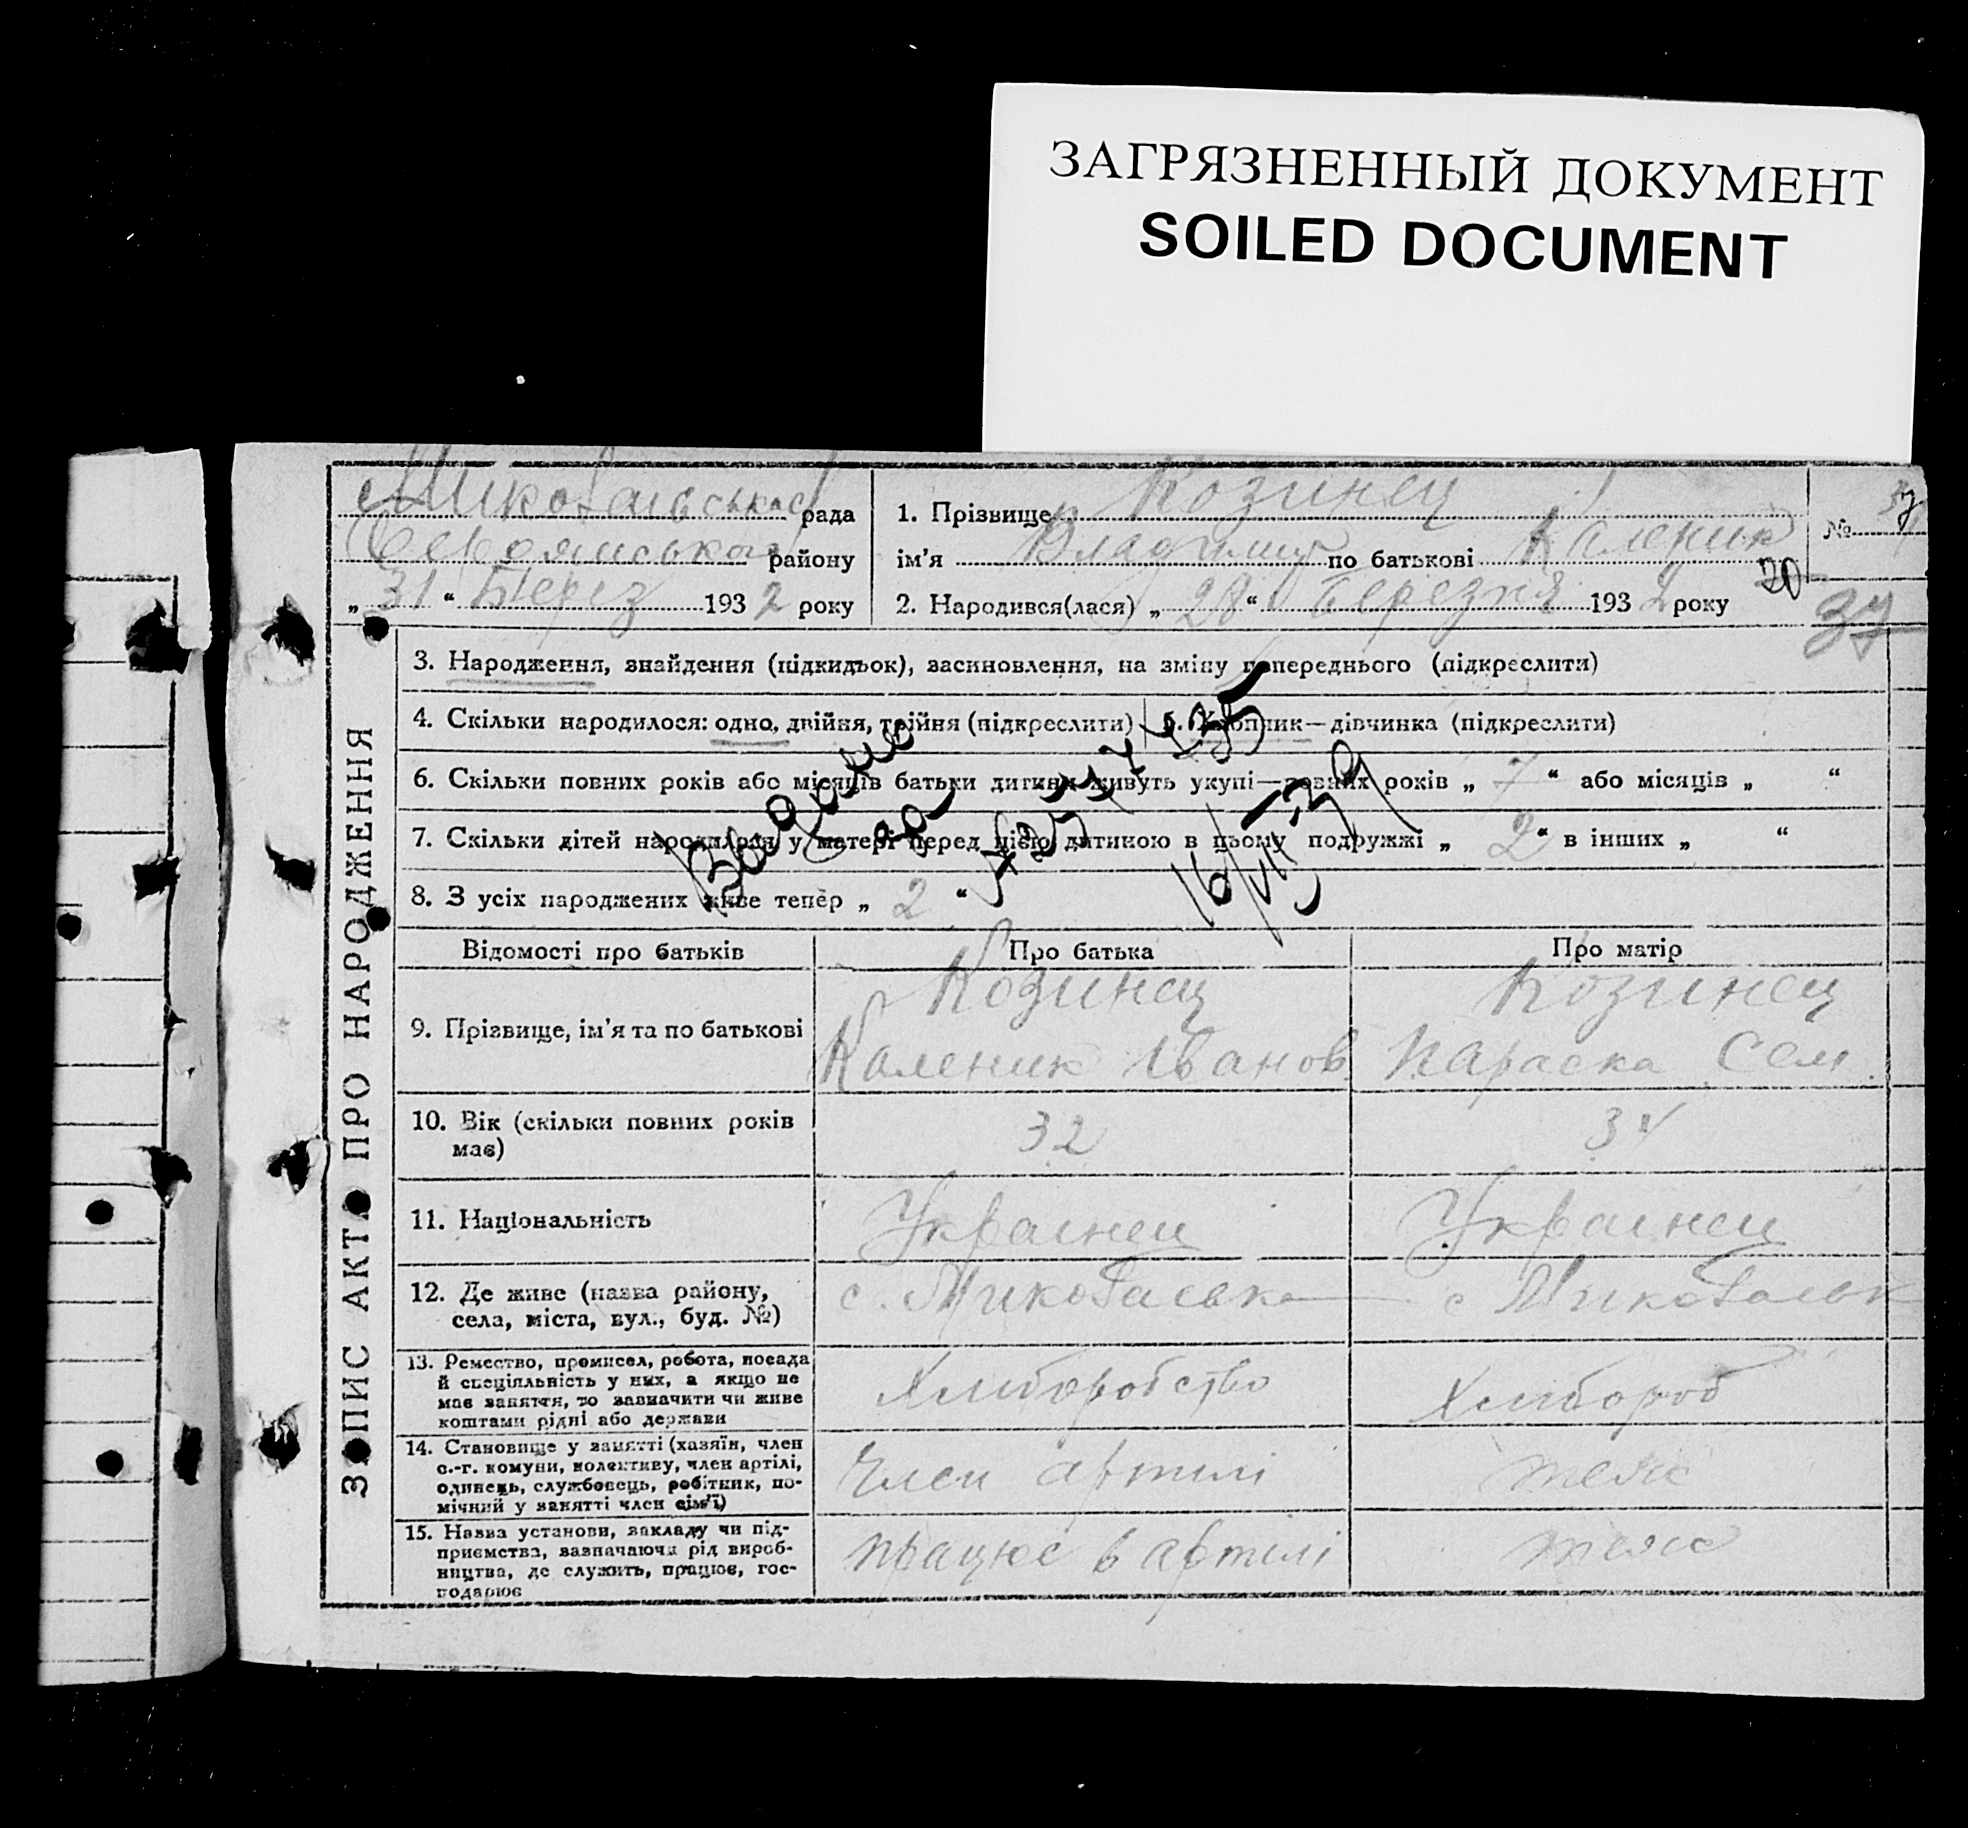 ЗАГРЯЗНЕННЫЙ ДОКУМЕНТ
SOILED DOCUMENT
рада
району
„ 31 “ Берез 1932 року
1. Прізвище Козинец
ім’я Владимир по батькові Каленик
2. Народився(лася) „ 28 “ Березня 1932 року
№ 37
20
37
ЗАПИС АКТА ПРО НАРОДЖЕННЯ
3. Народження, знайдення (підкидьок), засиновлення, на зміну попереднього (підкреслити)
4. Скільки народилося: одно, двійня, трійня (підкреслити)
5. Хлопчик—дівчинка (підкреслити)
6. Скільки повних років або місяців батьки дитини живуть укупі—повних років „ 7 “ або місяців „ “
7. Скільки дітей народилося у матері перед цією дитиною в цьому подружжі „ 2 “ в інших „ “
8. З усіх народжених живе тепер „ 2 “
Відомості про батьків
Про батька
Про матір
9. Прізвище, ім’я та по батькові
Козинец
Каленик Іванов
Козинец
Параска Сем.
10. Вік (скільки повних років
має)
32
11. Національність
Украінец
Украінец
12. Де живе (назва району,
села, міста, вул., буд. №)
13. Ремество, промисел, робота, посада
й спеціяльність у них, а якщо не
має заняття, то зазначити чи живе
коштами рідні або держави
Хлиборобство
Хлибороб
14. Становище у занятті (хазяїн, член
с.-г. комуни, колективу, член артілі,
одинець, службовець, робітник, по-
мічний у занятті член сім’ї)
Член артилі
теже
15. Назва установи, закладу чи під-
приємства, зазначаючи рід вироб-
ництва, де служить, працює, гос-
подарює
працює в артілі
теже